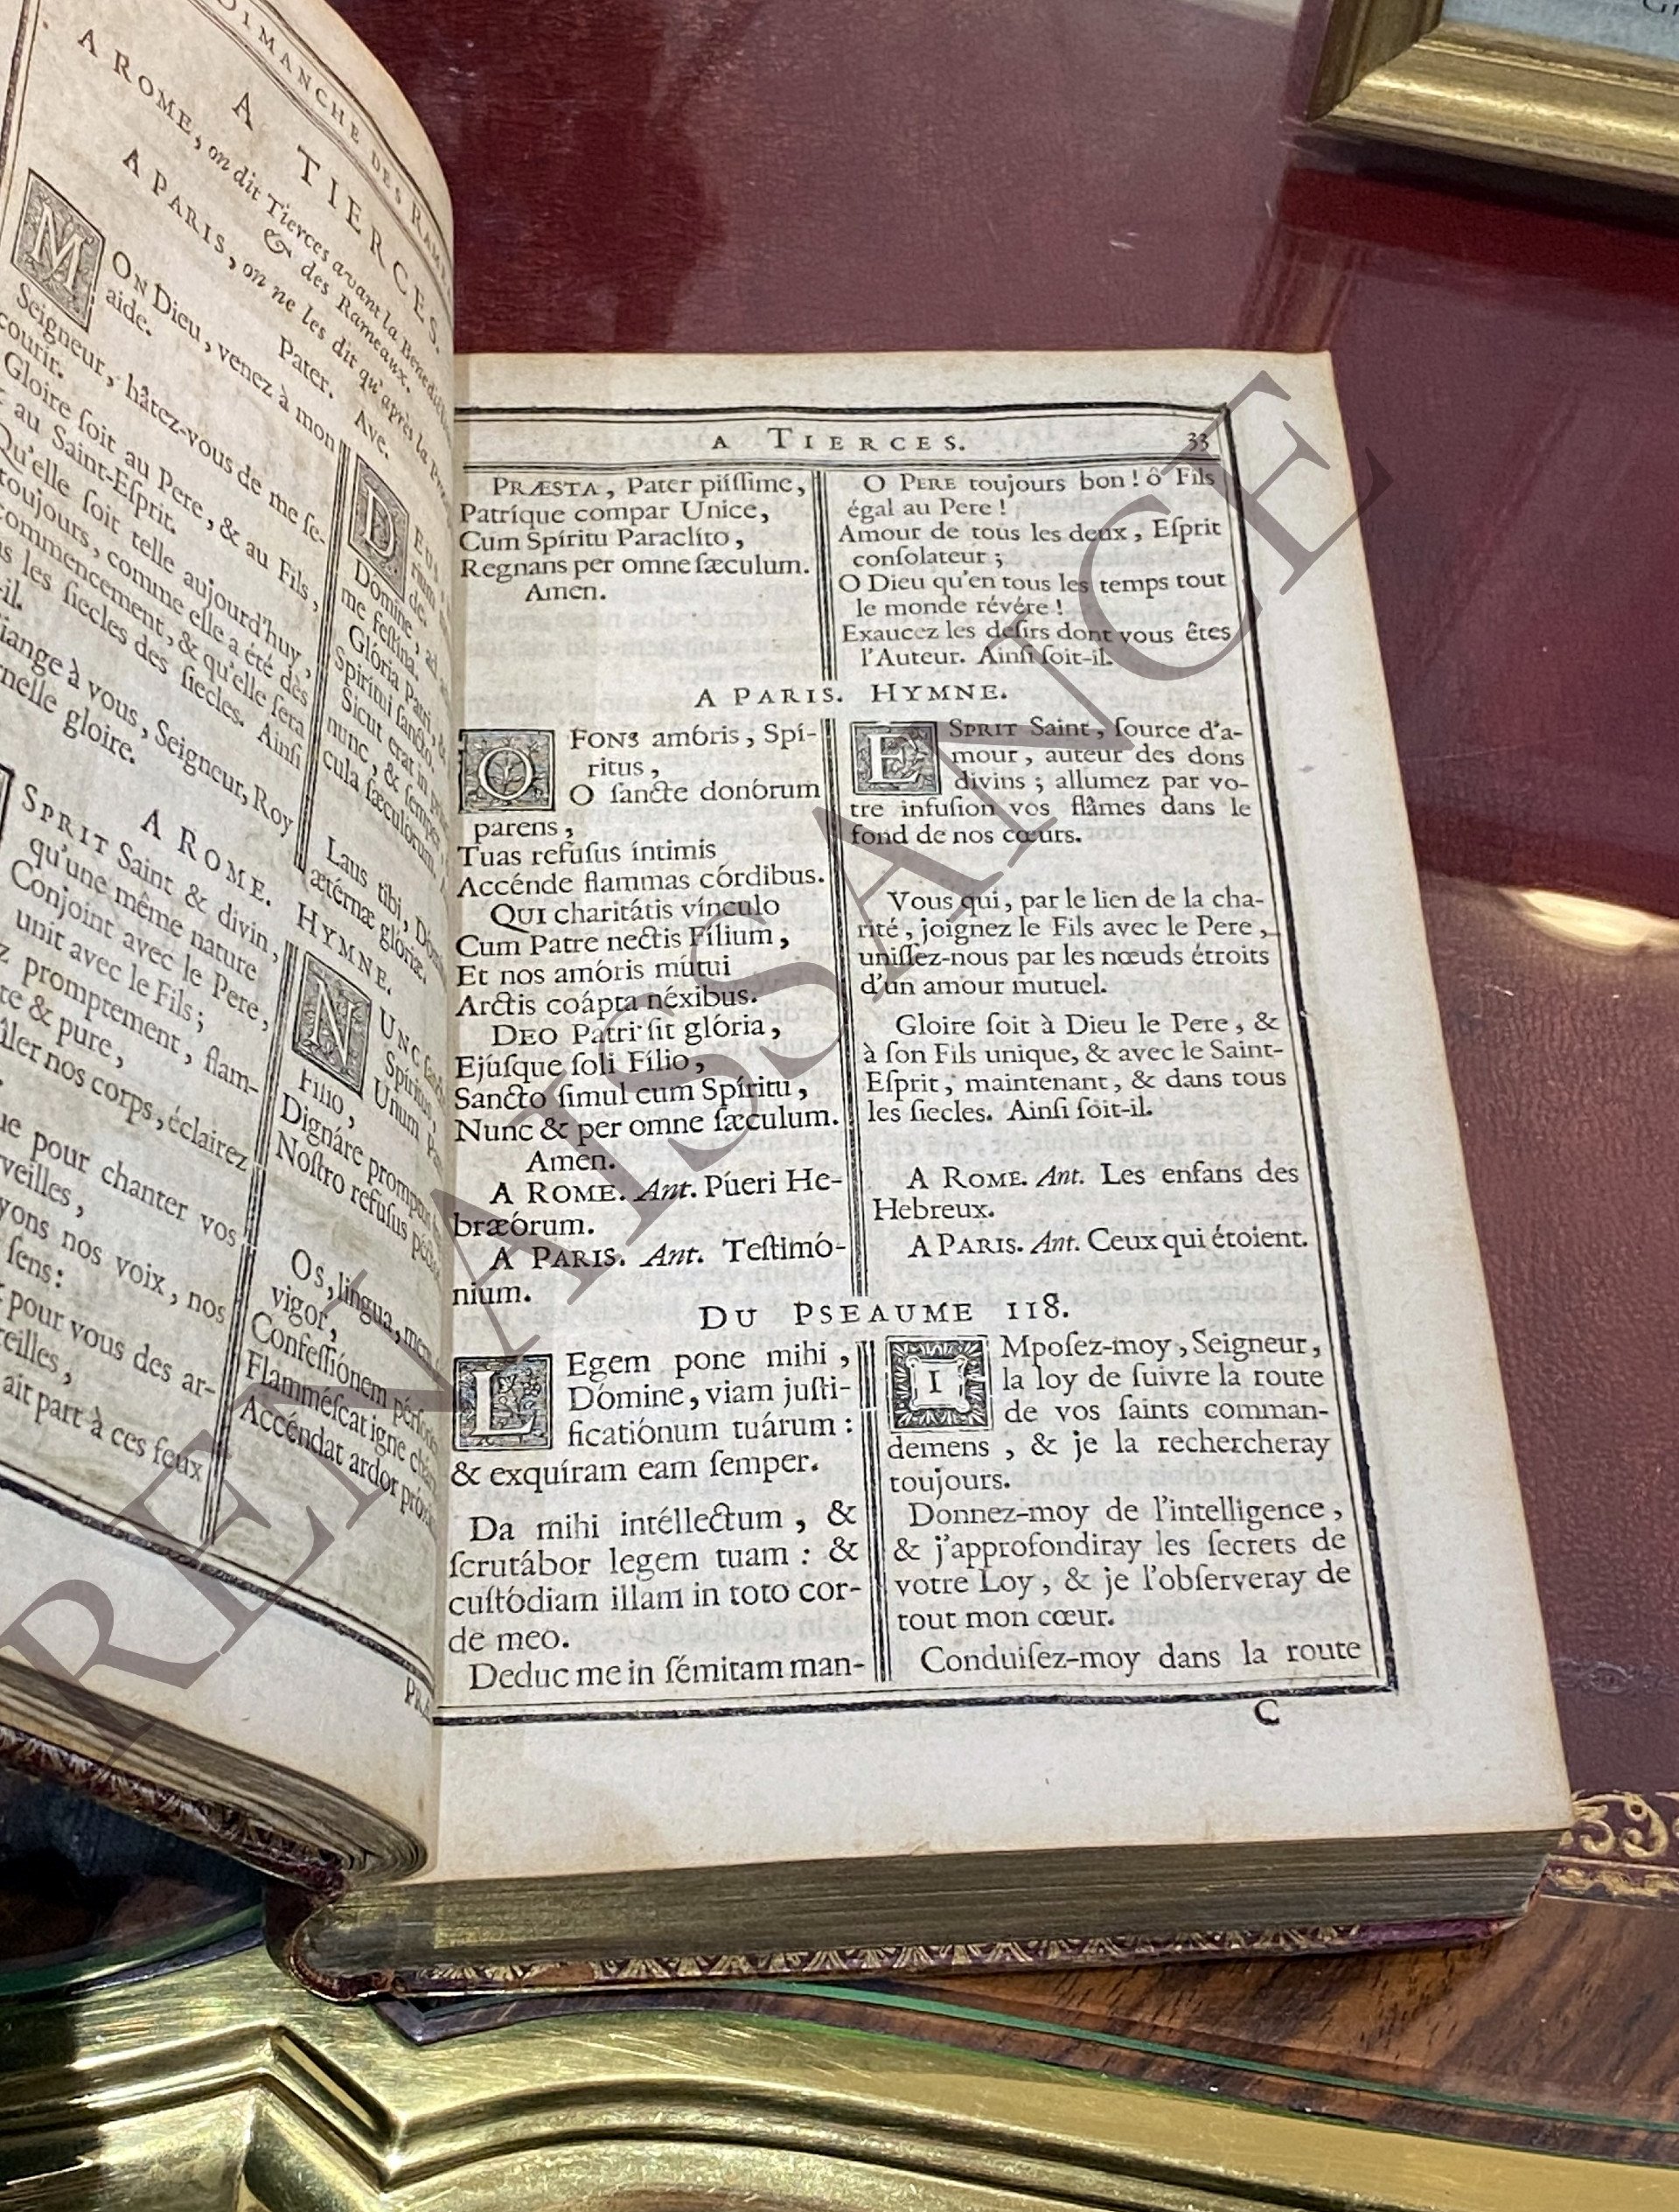 DIMANCHE DES RAM
A TIERCES.
A ROME, on dit Tierces avant la Benediction
& des Rameaux.
A PARIS, on ne les dit qu'après la Proce
Pater. Ave.
MON Dieu, venez à mon
aide.
Seigneur, hâtez-vous de me ſe-
courir.
Gloire ſoit au Pere, & au Fils,
& au Saint-Eſprit.
Qu'elle ſoit telle aujourd'huy,
toujours, comme elle a été dès
commencement, & qu'elle ſera
les ſiecles des ſiecles. Ainſi
-il.
à vous, Seigneur, Roy
gloire.
DEUS,
Domine, ad
me feſtina.
Glória Patri, &
Spirítui ſancto.
Sicut erat in
nunc, & ſemper
cula ſæculorum.
Laus tibi,
ætérnæ glóriæ.
A ROME. HYMNE.
ESPRIT Saint & divin,
qu'une même nature
Conjoint avec le Pere,
unit avec le Fils;
promptement, flam-
& pure,
nos corps, éclairez
pour chanter vos
nos voix, nos
ſens:
pour vous des ar-
ait part à ces feux
NUNC
Spíritus,
Unum
Filio,
Dignáre promptus
Noſtro refuſus
Os, lingua,
vigor,
Confeſſiónem
Flamméſcat igne
Accéndat ardor
A TIERCES. 33
PRÆSTA, Pater piíſſime,
Patríque compar Unice,
Cum Spíritu Paraclíto,
Regnans per omne ſæculum.
Amen.
O PERE toujours bon! ô Fils
égal au Pere!
Amour de tous les deux, Eſprit
conſolateur;
O Dieu qu'en tous les temps tout
le monde révére!
Exaucez les deſirs dont vous êtes
l'Auteur. Ainſi ſoit-il.
A PARIS. HYMNE.
O FONS amóris, Spí-
ritus,
O ſancte donórum
parens,
Tuas refuſus íntimis
Accénde flammas córdibus.
QUI charitátis vínculo
Cum Patre nectis Fílium,
Et nos amóris mútui
Arctis coápta néxibus.
DEO Patri ſit glória,
Ejúſque ſoli Fílio,
Sancto ſimul cum Spíritu,
Nunc & per omne ſæculum.
Amen.
A ROME. Ant. Púeri He-
bræórum.
A PARIS. Ant. Teſtimó-
nium.
ESPRIT Saint, ſource d'a-
mour, auteur des dons
divins; allumez par vo-
tre infuſion vos flâmes dans le
fond de nos cœurs.
Vous qui, par le lien de la cha-
rité, joignez le Fils avec le Pere,
uniſſez-nous par les nœuds étroits
d'un amour mutuel.
Gloire ſoit à Dieu le Pere, &
à ſon Fils unique, & avec le Saint-
Eſprit, maintenant, & dans tous
les ſiecles. Ainſi ſoit-il.
A ROME. Ant. Les enfans des
Hebreux.
A PARIS. Ant. Ceux qui étoient.
DU PSEAUME 118.
LEgem pone mihi,
Dómine, viam juſti-
ficatiónum tuárum:
& exquíram eam ſemper.
Da mihi intéllectum, &
ſcrutábor legem tuam: &
cuſtódiam illam in toto cor-
de meo.
Deduc me in ſémitam man-
IMpoſez-moy, Seigneur,
la loy de ſuivre la route
de vos ſaints comman-
demens, & je la rechercheray
toujours.
Donnez-moy de l'intelligence,
& j'approfondiray les ſecrets de
votre Loy, & je l'obſerveray de
tout mon cœur.
Conduiſez-moy dans la route
C
RENAISSANCE